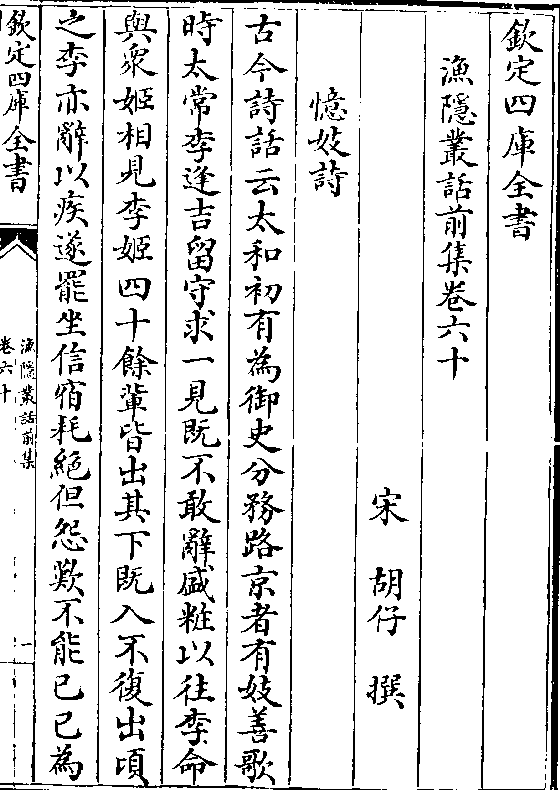 欽定四庫全書
漁隱叢話前集卷六十
宋 胡仔 撰
憶妓詩
古今詩話云太和初有為御史分務路京者有妓善歌
時太常李逢吉留守求一見既不敢辭盛粧以往李命
與衆姬相見李姬四十餘輩皆出其下既入不復出頃
之李亦辭以疾遂罷坐信宿耗絶但怨歎不能已已為
欽定四庫全書
漁隱叢話前集
卷六十
一